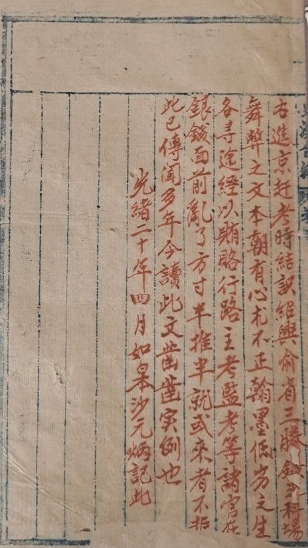 古進京赶考時結訣紹興俞省三賸録弟科場
舞弊之文本朝有心札不正翰墨低劣之生
各尋途經以賄賂行路主考監考等諸官在
銀錢面前亂了方寸半推半就或來者不拒
此已傳闻多年今讀此文凿凿实例也
光緒二十年四月如皋沙元炳記此